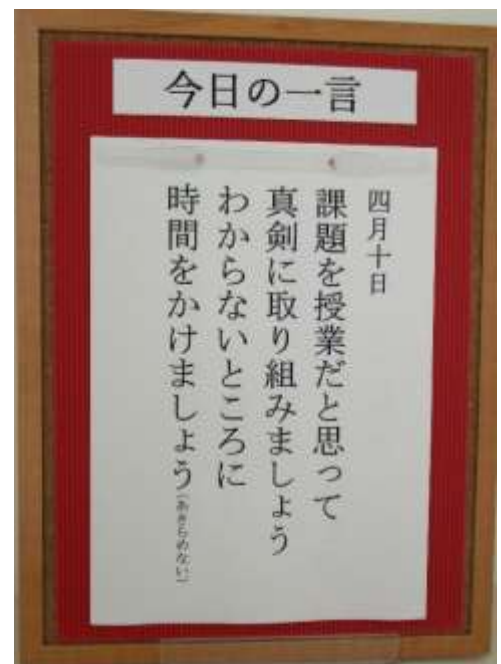 今日の一言
四月十日
課題を授業だと思って
真剣に取り組みましょう
わからないところに
時間をかけましょう(あきらめない)